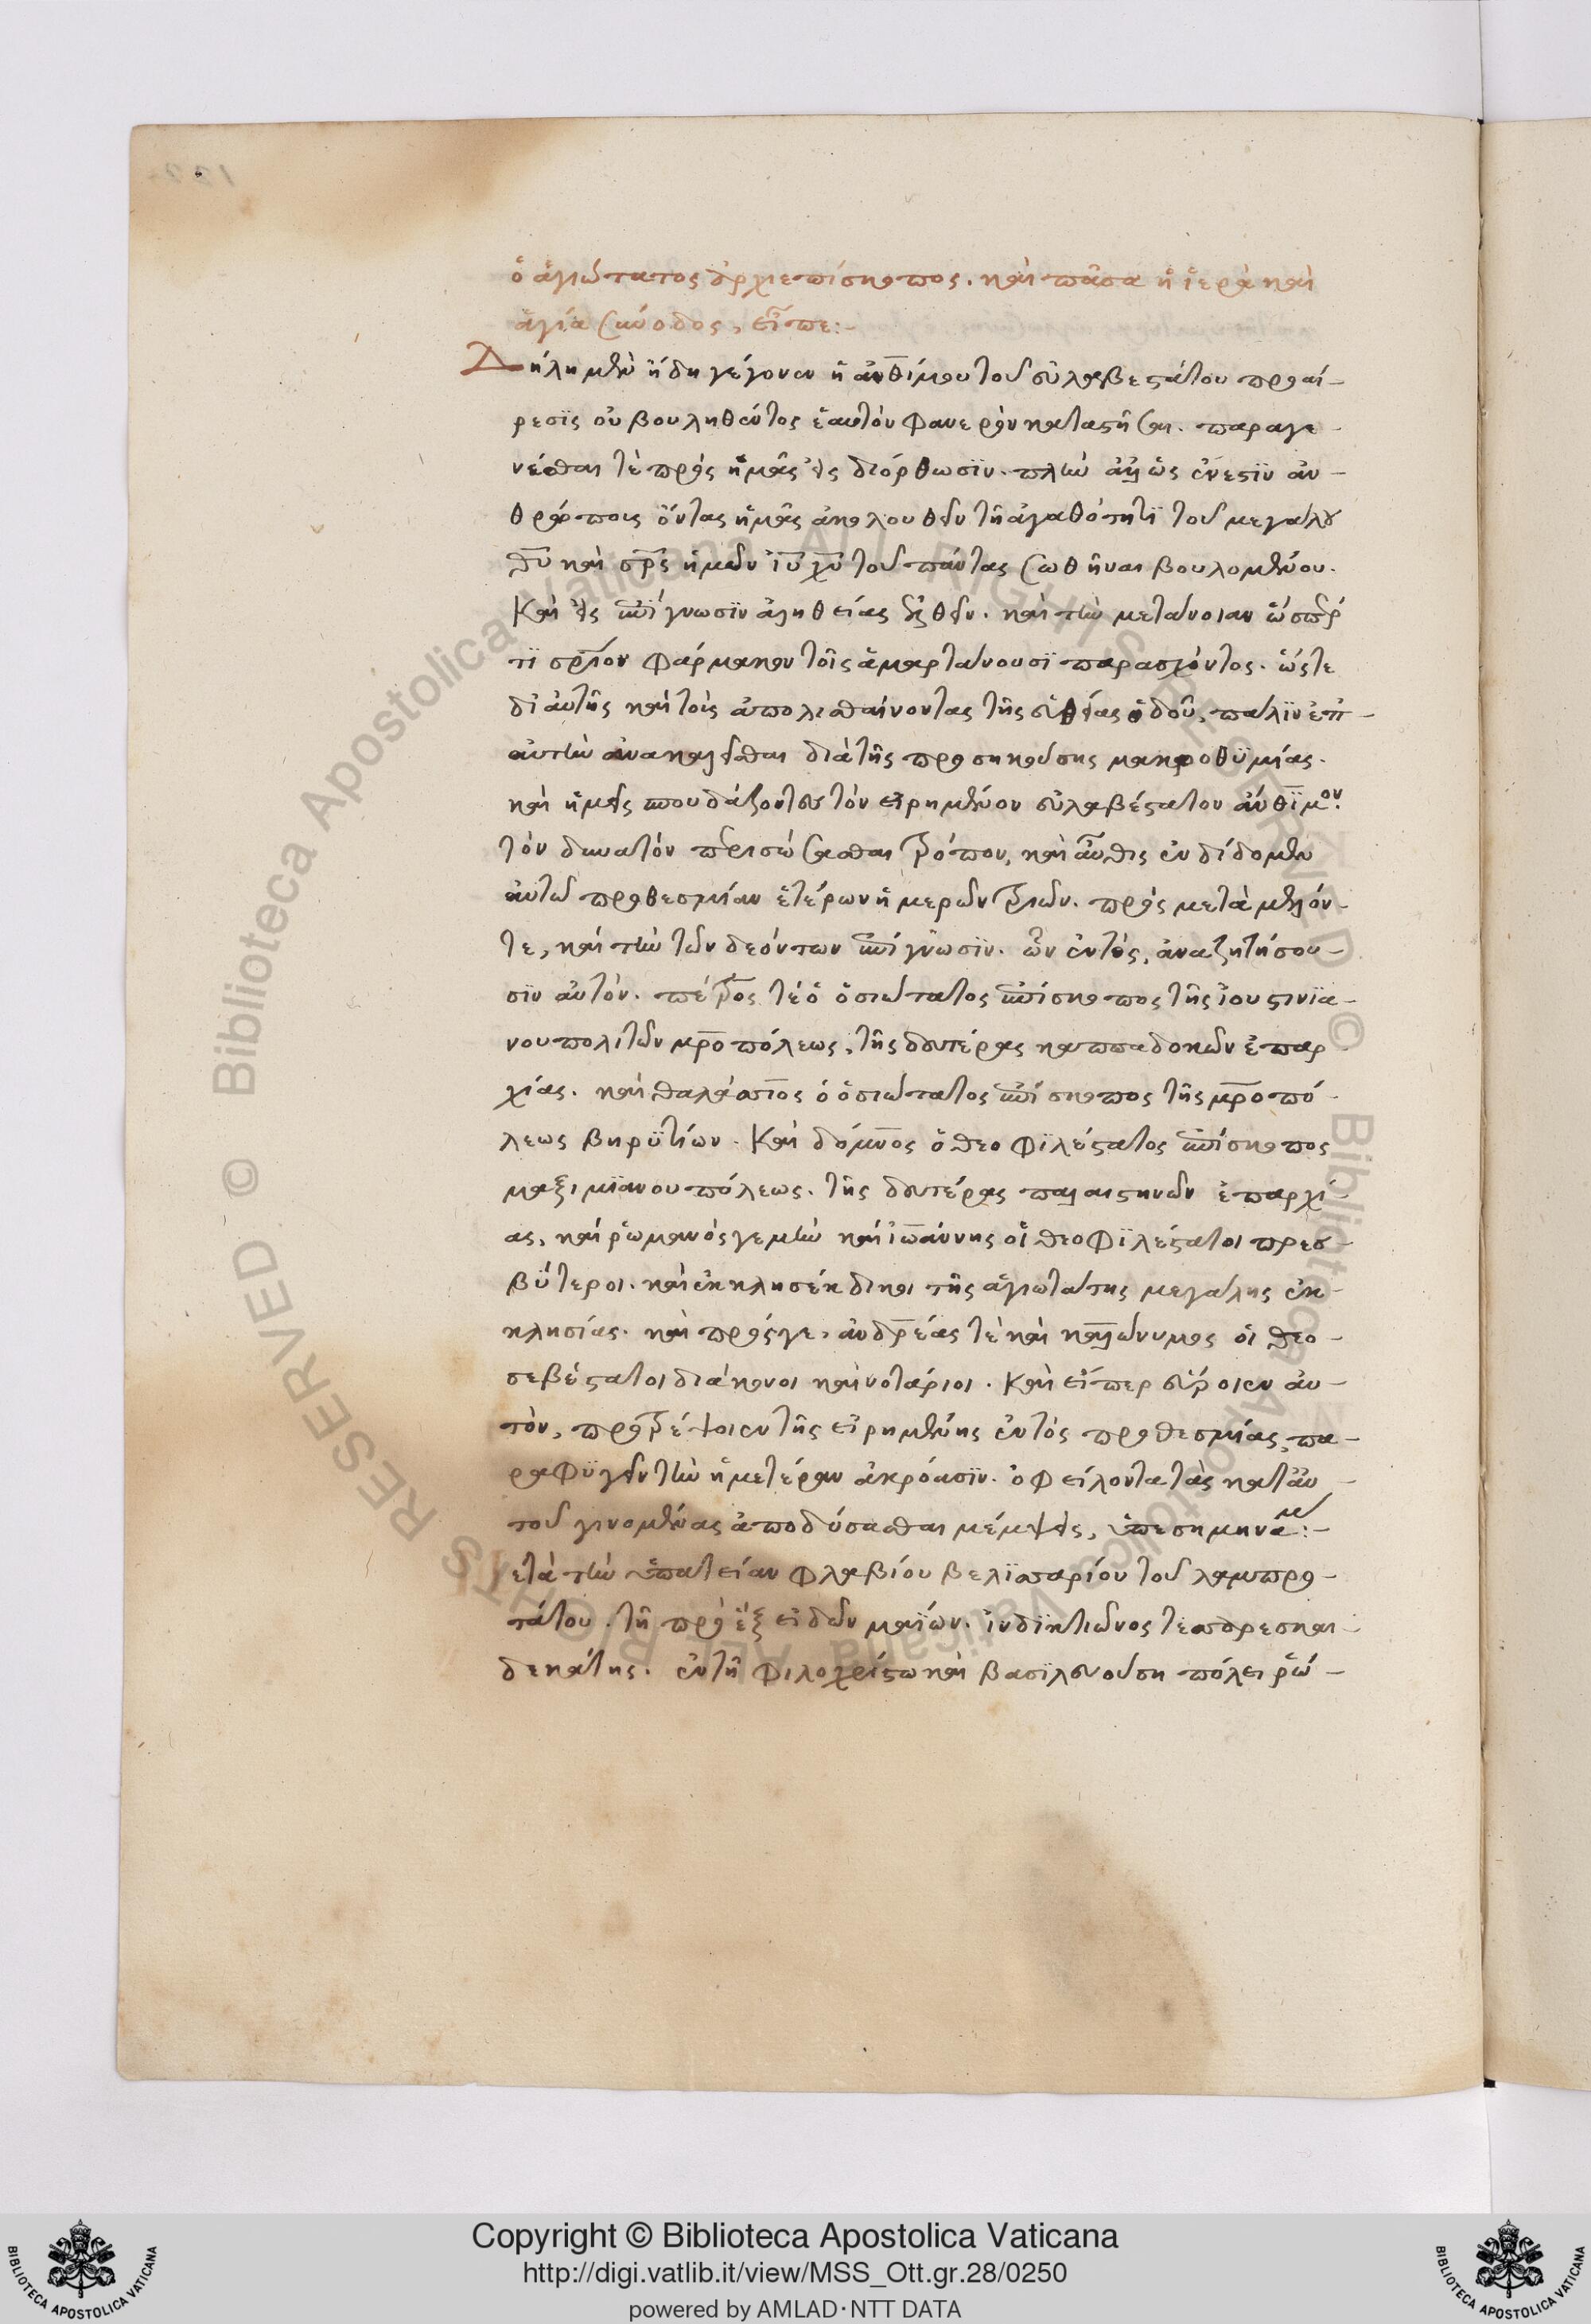 ὁ ἁγιώτατος ἀρχιεπίσκοπος. καὶ πᾶσα ἡ ἱερὰ καὶ
ἁγία σύνοδος, εἶπε:-
Δήλη μὲν ἤδη γέγονεν ἡ ἀνθίμου τοῦ εὐλαβεστάτου προαί-
ρεσϊς οὐ βουληθέντος ἑαυτὸν φανερὸν καταστῆσαι. παραγε-
νέσθαι τὲ πρὸς ἡμᾶς εἰς διόρθωσϊν. πλὴν ἀλλ' ὡς ἔνεστϊν ἀν-
θρώποις ὄντας ἡμᾶς ἀκολουθεῖν τῇ ἀγαθότητϊ τοῦ μεγάλου
θῡ καὶ σρ̄ς ἡμῶν ἰῡ χῡ τοῦ πάντας σωθῆναι βουλομένου.
Καὶ εἰς ἐπίγνωσϊν ἀληθείας ἐλθεῖν. καὶ τὴν μετάνοιαν ὥσπερ
τϊ σρ̄ιον φάρμακον τοῖς ἁμαρτάνουσϊ παρασχόντος. ὥστε
δϊ αὐτῆς καὶ τοὺς ἀπολισθαίνοντας τῆς εὐθείας ὁδοῦ, πάλϊν ἐπ'
αὐτὴν ἀνακαλεῖσθαι διὰ τῆς προσηκούσης μακροθϋμίας.
καὶ ἡμεῖς σπουδάζοντες τὸν εἰρημένον εὐλαβέστατον ἄνθϊμον
τὸν δυνατὸν περισώσασθαι τρόπον, καὶ αὖθις ἐνδίδομεν
αὐτῶ προθεσμίαν ἑτέρων ἡμερῶν τριῶν. πρὸς μετάμελόν-
τε, καὶ τὴν τῶν δεόντων ἐπίγνωσϊν. ὧν ἐντὸς, ἀναζητήσου-
σϊν αὐτὸν. πέτρος τέ ὁ ὁσιώτατος ἐπίσκοπος τῆς ἰουστινϊα-
νουπολιτῶν μρ̄οπόλεως, τῆς δευτέρας καππαδοκῶν ἐπαρ
χίας. καὶ θαλάσσιος ὁ ὁσιώτατος ἐπίσκοπος τῆς μρ̄οπό-
λεως βηρϋτίων. Καὶ δόμνος ὁ θεοφϊλέστατος ἐπίσκοπος
μαξιμϊανουπόλεως. τῆς δευτέρας παλαιστηνῶν ἐπαρχί-
ας, καὶ ῥωμανός γε μὴν καὶ ἰωάννης οἱ θεοφϊλέστατοι πρεσ-
βϋτεροι. καὶ ἐκκλησέκδικοι τῆς ἁγιωτάτης μεγάλης ἐκ-
κλησίας. καὶ πρός γε, ἀνδρέας τὲ καὶ καλώνυμος οἱ θεο-
σεβέστατοι διάκονοι καὶ νοτάριοι. Καὶ εἴπερ εὕροιεν αὐ-
τὸν, προτρέψοιεν τῆς εἰρημένης ἐντὸς προθεσμίας, πα-
ραφϋγεῖν τὴν ἡμετέραν ἀκρόασϊν. ὀφείλοντα τὰς κατ' αὐ-
τοῦ γινομένας ἀποδύσασθαι μέμψεις, ὑπεσημηνάμ:-
Μετὰ τὴν ὑπατείαν φλαβίου βελϊσσαρίου τοῦ λαμπρο-
τάτου. τῇ πρὸ ἓξ εἰδῶν μαΐων. ἰνδϊκτιῶνος τεσσαρεσκαι
δεκάτης. ἐν τῇ φιλοχρίστω καὶ βασϊλευούση πόλει ῥώ-
Copyright © Biblioteca Apostolica Vaticana
http://digi.vatlib.it/view/MSS_Ott.gr.28/0250
powered by AMLAD·NTT DATA